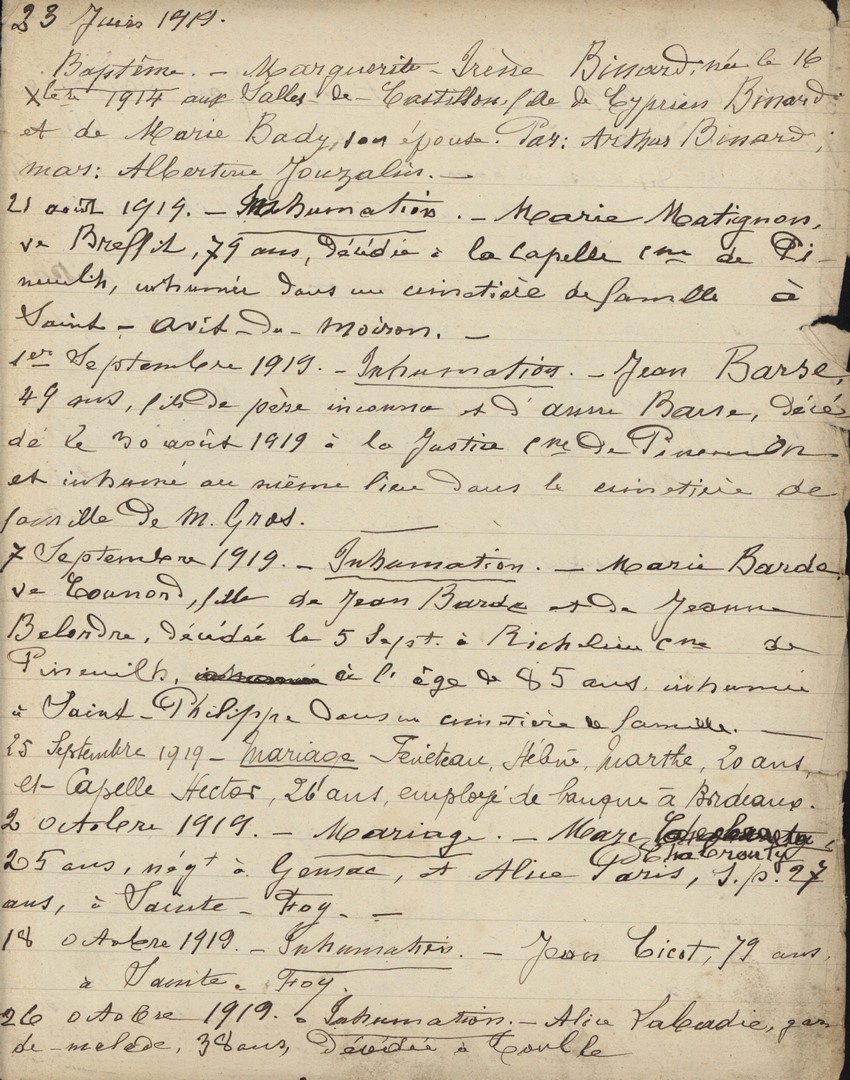 23 Juin 1919.
Baptême. – Marguerite – Irène Binard, née le 16
Xbre 1914 aux Salles-de-Castillon, fille de Cyprien Binard
et de Marie Bady, son épouse. Par: Arthur Binard;
mar: Albertine Jouzalin. –
21 août 1919. – Inhumation. – Marie Matignon,
ve Breffit, 79 ans, décédée à la Capelle cne de Pi-
neuilh, inhumée dans un cimetière de famille à
Saint-Avit-du-Moiron. –
1er Septembre 1919. – Inhumation. – Jean Barse,
49 ans, fils de père inconnu et d'anne Barse, décé
dé le 30 août 1919 à la Justice cne de Pineuilh
et inhumé au même lieu dans le cimetière de
famille de M. Gros.
7 Septembre 1919. – Inhumation. – Marie Barde
ve Tounord, fille de Jean Barde et de Jeanne
Belordre, décédée le 5 Sept. à Richelieu cne de
Pineuilh, à l'âge de 85 ans, inhumée
à Saint-Philippe dans un cimetière de famille. –
25 Septembre 1919 – Mariage Marthe, 20 ans,
et Capelle Hector, 26 ans, employé de banque à Bordeaux.
2 Octobre 1919. – Mariage. – Marc
25 ans, négt à Gensac, et Alice Paris, s.p. 27
ans, à Sainte-Foy. –
18 Octobre 1919. – Inhumation. – Jean Cicot, 79 ans,
à Sainte-Foy.
26 Octobre 1919. – Inhumation. – Alice Labadie, garde
de-malade, 38 ans, décédée à